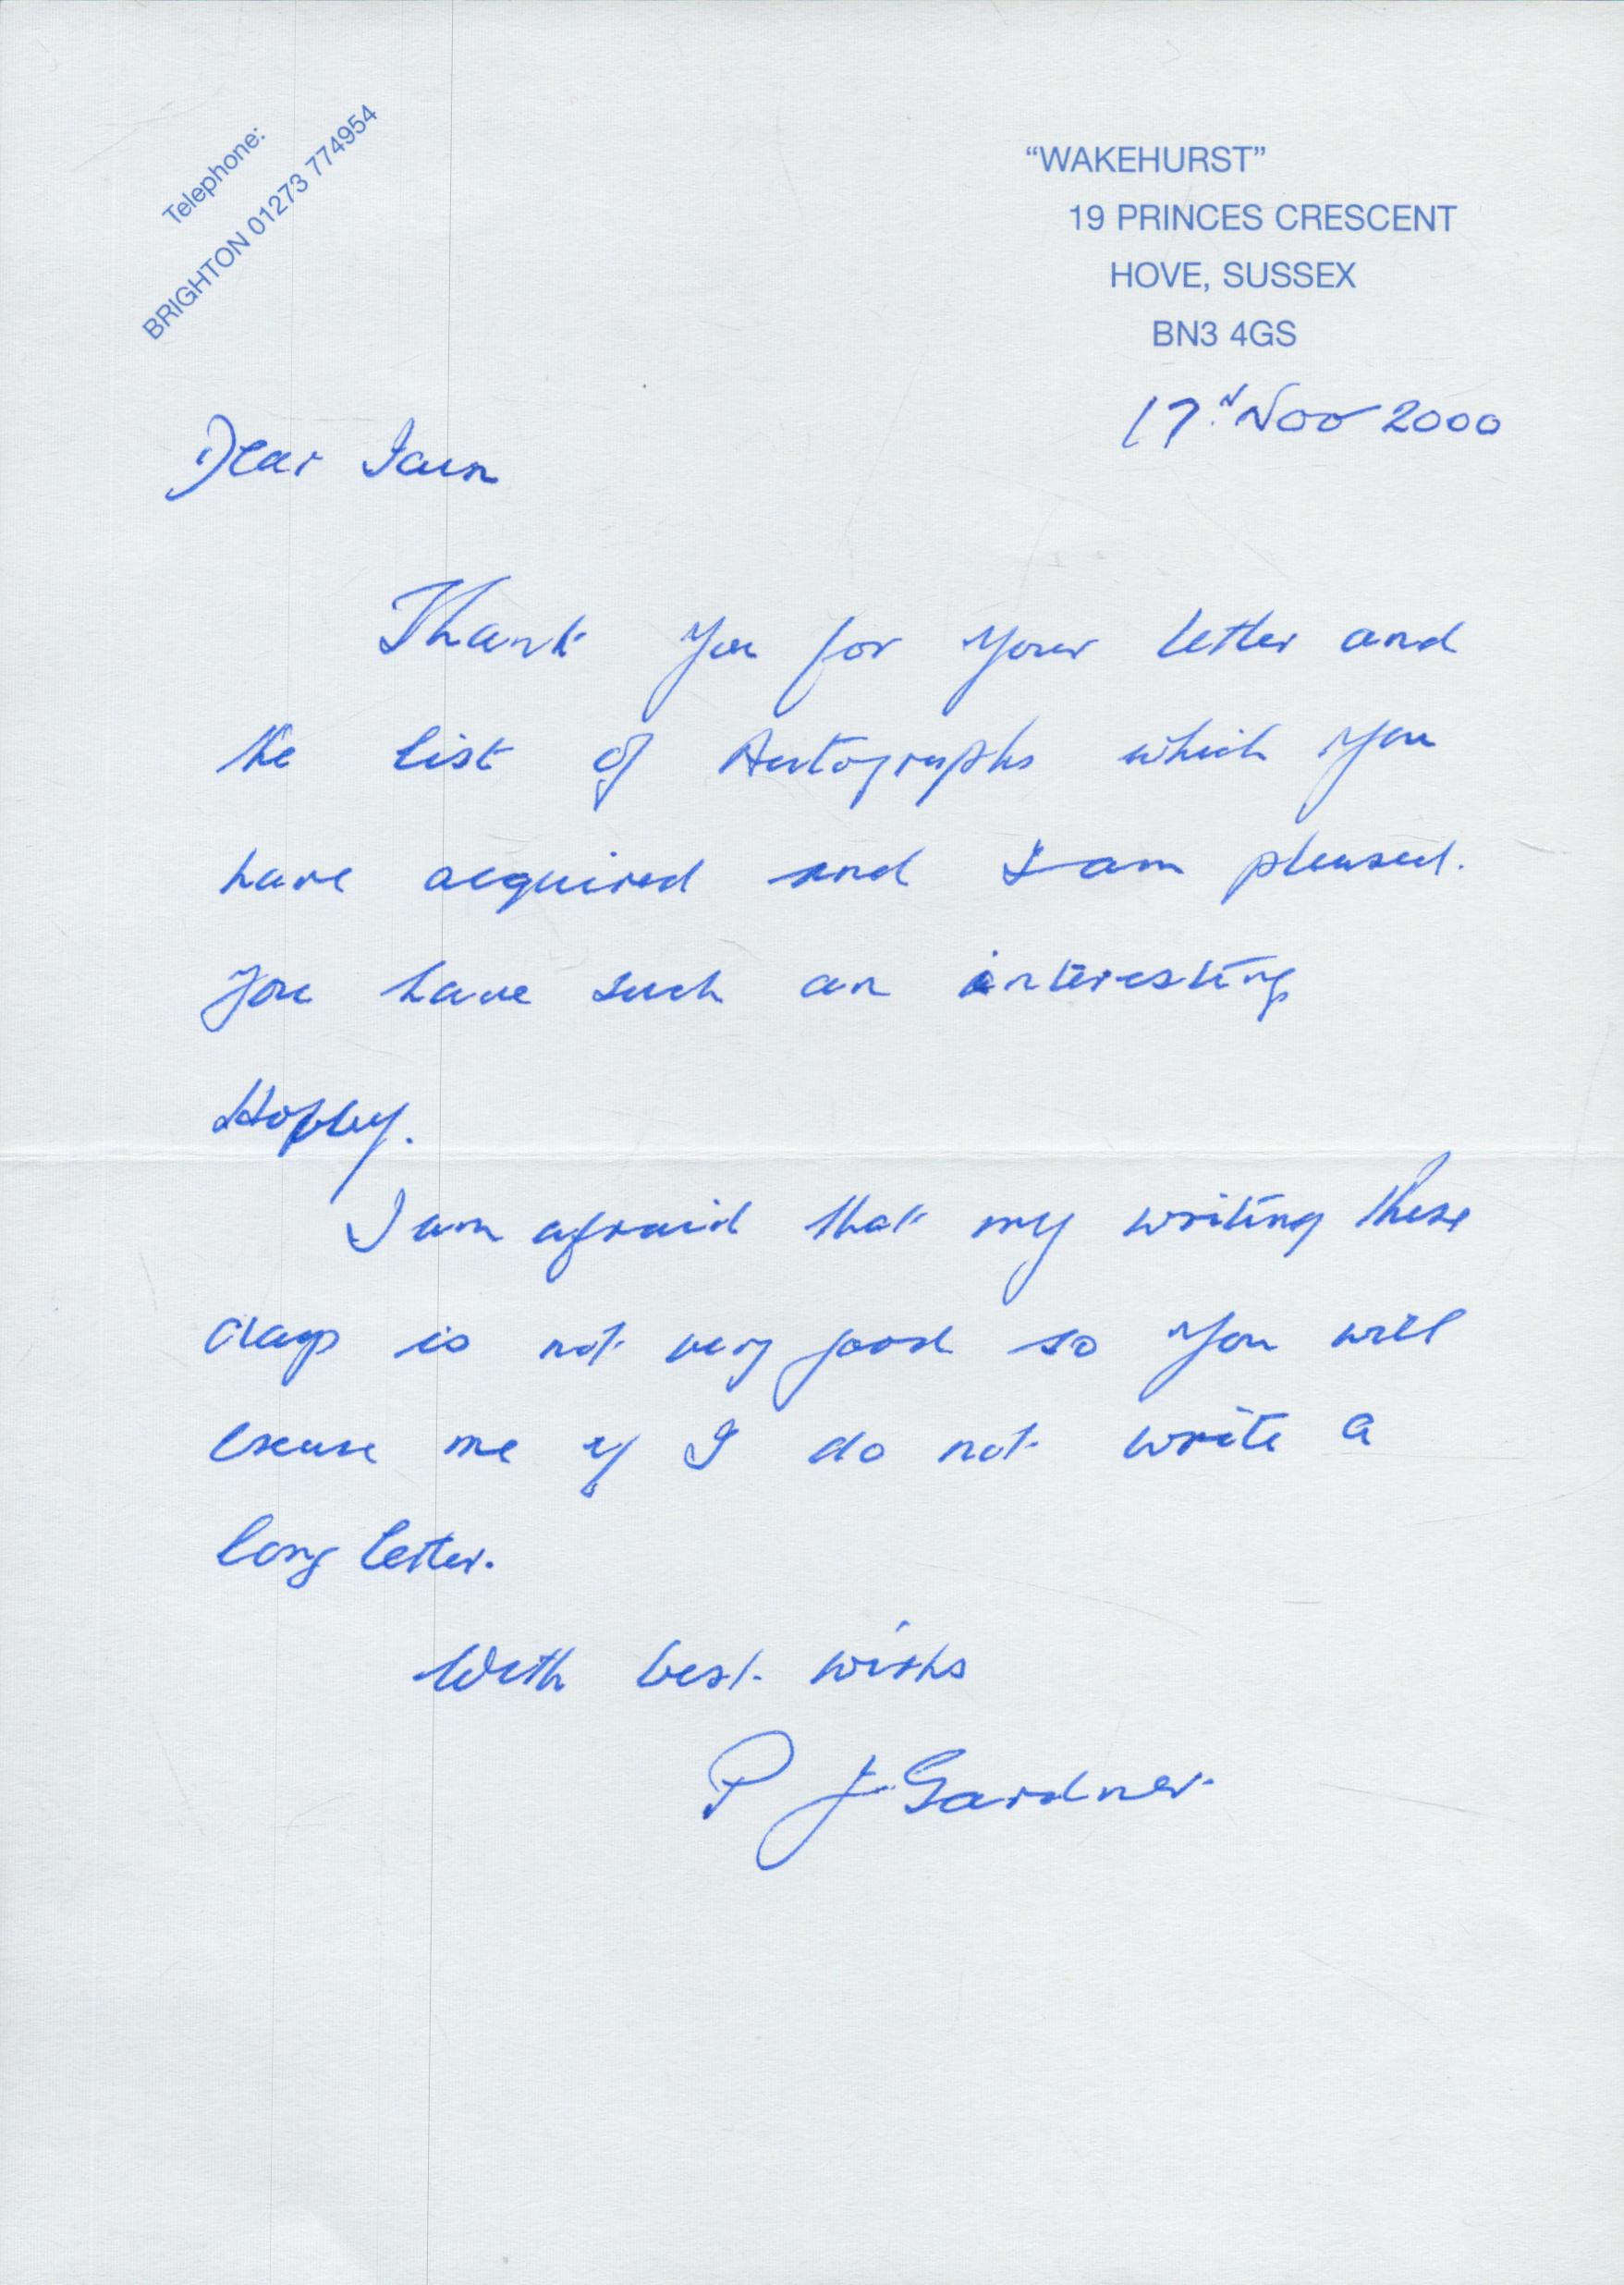 Telephone:
BRIGHTON 01273 774954
“WAKEHURST”
19 PRINCES CRESCENT
HOVE, SUSSEX
BN3 4GS
17th Nov 2000
Dear Iain
Thank you for your letter and
the list of Autographs which you
have acquired and I am pleased.
you have such an interesting
Hobby.
I am afraid that my writing these
days is not very good so you will
excuse me if I do not write a
long letter.
With best wishes
P J Gardner.